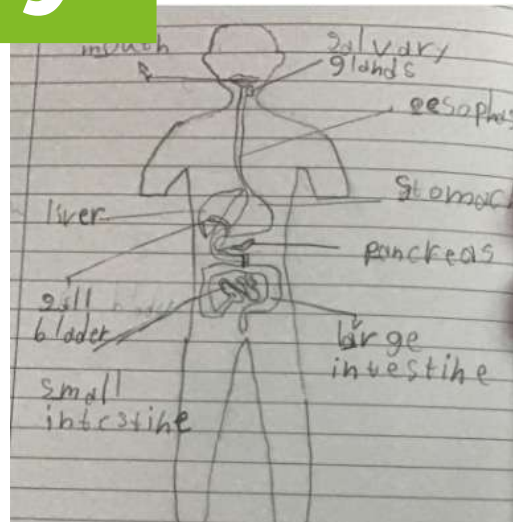 mouth
salvary
glands
oesophas
stomac
liver
pancreas
gall
blader
large
intestine
small
intestine